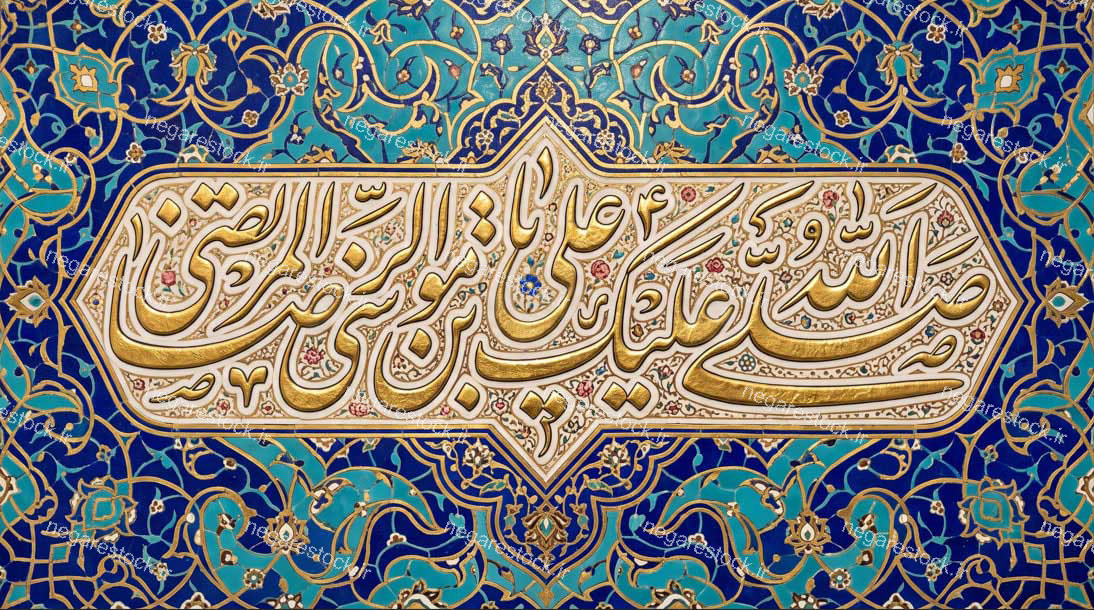 صلی الله علیک یا علی بن موسی الرضا المرتضی
negarestock.ir